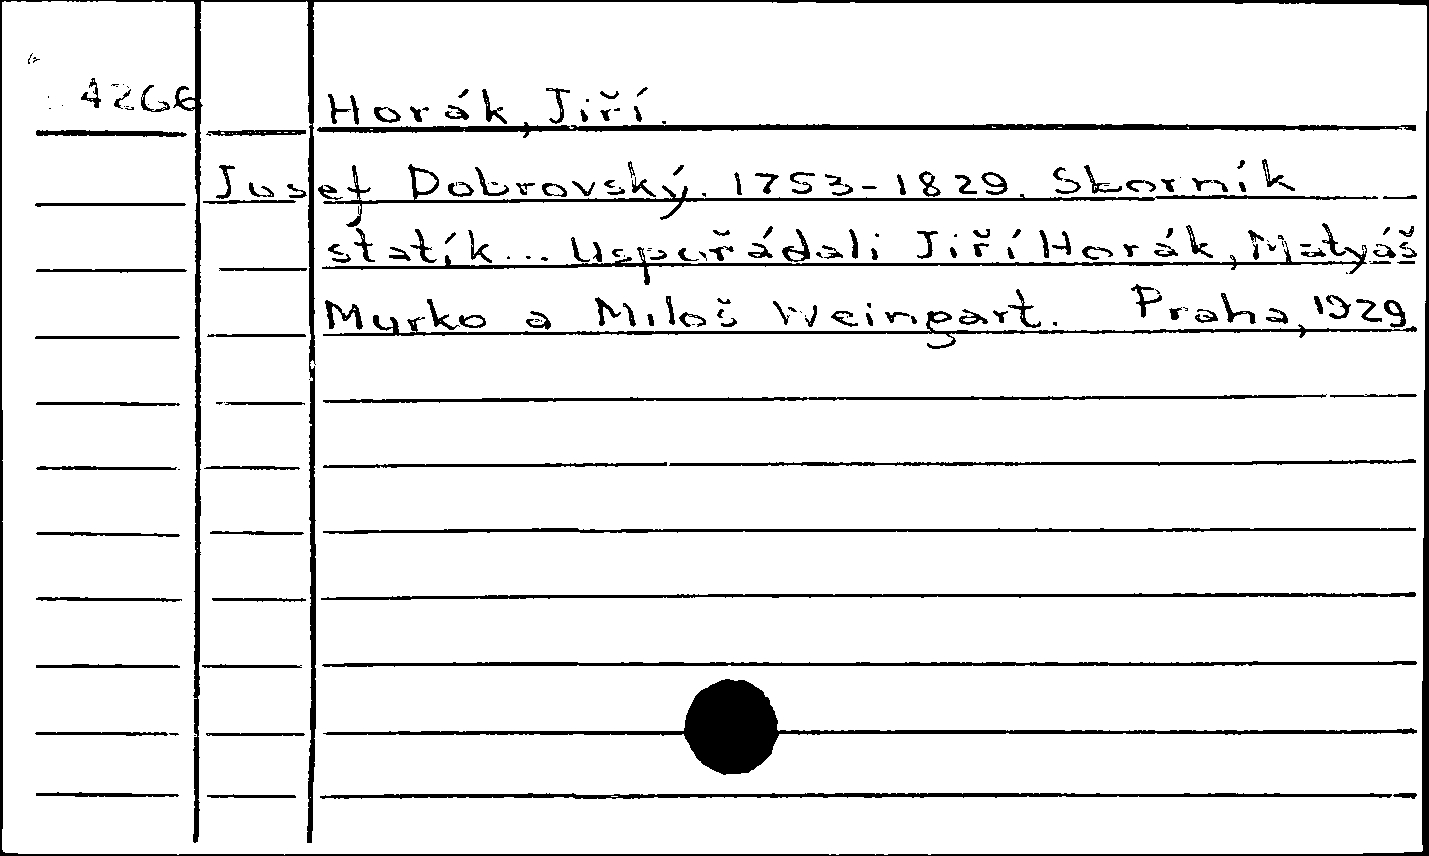 4266
Horák, Jiří.
Josef Dobrovský. 1753-1829. Skorník
statík... Uspořádali Jiří Horák, Matyáš
Myrko a Miloš Weingart. Praha, 1929